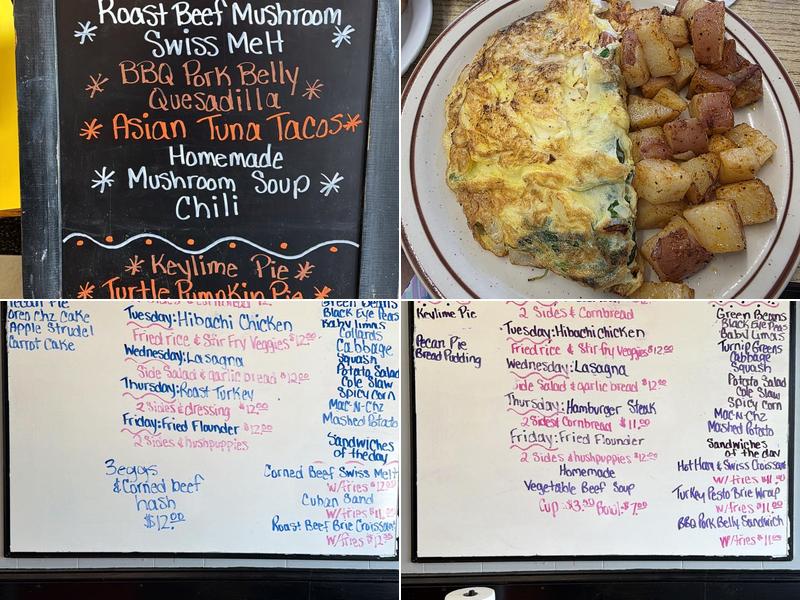 Roast Beef Mushroom
Swiss Melt
BBQ Pork Belly
Quesadilla
Asian Tuna Tacos
Homemade
Mushroom Soup
Chili
Keylime Pie
Turtle Pumpkin Pie
Pecan Pie
Oreo Chz Cake
Apple Strudel
Carrot Cake
2 Sides & Cornbread 12.
Tuesday: Hibachi Chicken
Fried rice & Stir Fry Veggies $12.00
Wednesday: Lasagna
Side Salad & garlic bread $12.00
Thursday: Roast Turkey
2 Sides & dressing $12.00
Friday: Fried Flounder $12.00
2 Sides & hushpuppies
3 eggs
& Corned beef
hash
$12.00
Green Beans
Black Eye Peas
Baby limas
Collards
Cabbage
Squash
Potato Salad
Cole Slaw
Spicy Corn
Mac-N-Chz
Mashed Potato
Sandwiches
of the day
Corned Beef Swiss Melt
w/fries $12.00
Cuban Sand
w/fries $11.
Roast Beef Brie Croissant
w/fries $12.
Keylime Pie
Pecan Pie
Bread Pudding
2 Sides & Cornbread
Tuesday: Hibachi Chicken
Fried rice & Stir fry Veggies $12.00
Wednesday: Lasagna
Side Salad & garlic bread $12.00
Thursday: Hamburger Steak
2 Sides & Cornbread $11.00
Friday: Fried Flounder
2 Sides & hushpuppies $12.00
Homemade
Vegetable Beef Soup
Cup $3.50 Bowl $7.00
Green Beans
Black Eye Peas
Baby Limas
Turnip Greens
Cabbage
Squash
Potato Salad
Cole Slaw
Spicy Corn
Mac-N-Chz
Mashed Potato
Sandwiches
of the day
Hot Ham & Swiss Croissant
w/fries $11.00
Turkey Pesto Brie Wrap
w/fries $11.00
BBQ Pork Belly Sandwich
w/fries $11.00